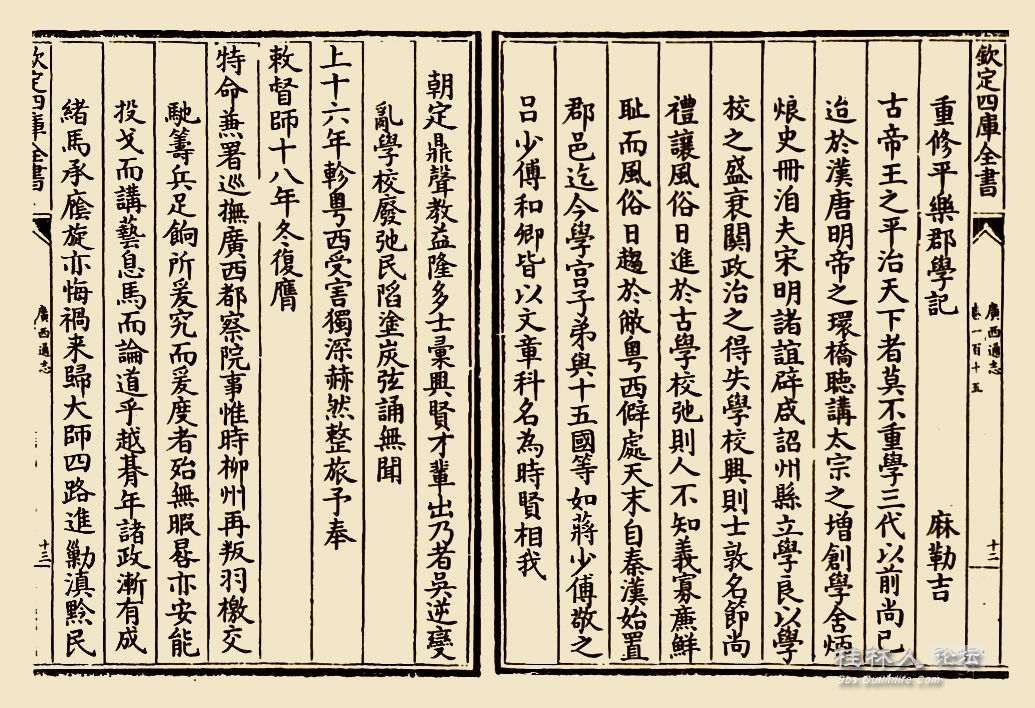 欽定四庫全書
廣西通志
卷一百十五
十二
重修平樂郡學記 麻勒吉
古帝王之平治天下者莫不重學三代以前尚已
迨於漢唐明帝之環橋聽講太宗之增創學舍炳
烺史冊洎夫宋明諸誼辟咸詔州縣立學良以學
校之盛衰關政治之得失學校興則士敦名節尚
禮讓風俗日進於古學校弛則人不知義寡亷鮮
耻而風俗日趨於敝粤西僻處天末自秦漢始置
郡邑迄今學宫子弟與十五國等如蔣少傅敬之
吕少傅和卿皆以文章科名為時賢相我
朝定鼎聲教益隆多士彚興賢才輩出乃者吳逆變
亂學校廢弛民䧟塗炭弦誦無聞
上十六年軫粤西受害獨深赫然整旅予奉
敕督師十八年冬復膺
特命兼署巡撫廣西都察院事惟時柳州再叛羽檄交
馳籌兵足餉所爰究而爰度者殆無暇晷亦安能
投戈而講藝息馬而論道乎越朞年諸政漸有成
緒馬承廕旋亦悔禍来歸大師四路進勦滇黔民
欽定四庫全書
廣西通志
十三
桂林人 论坛
bbs.Guilinlife.Com